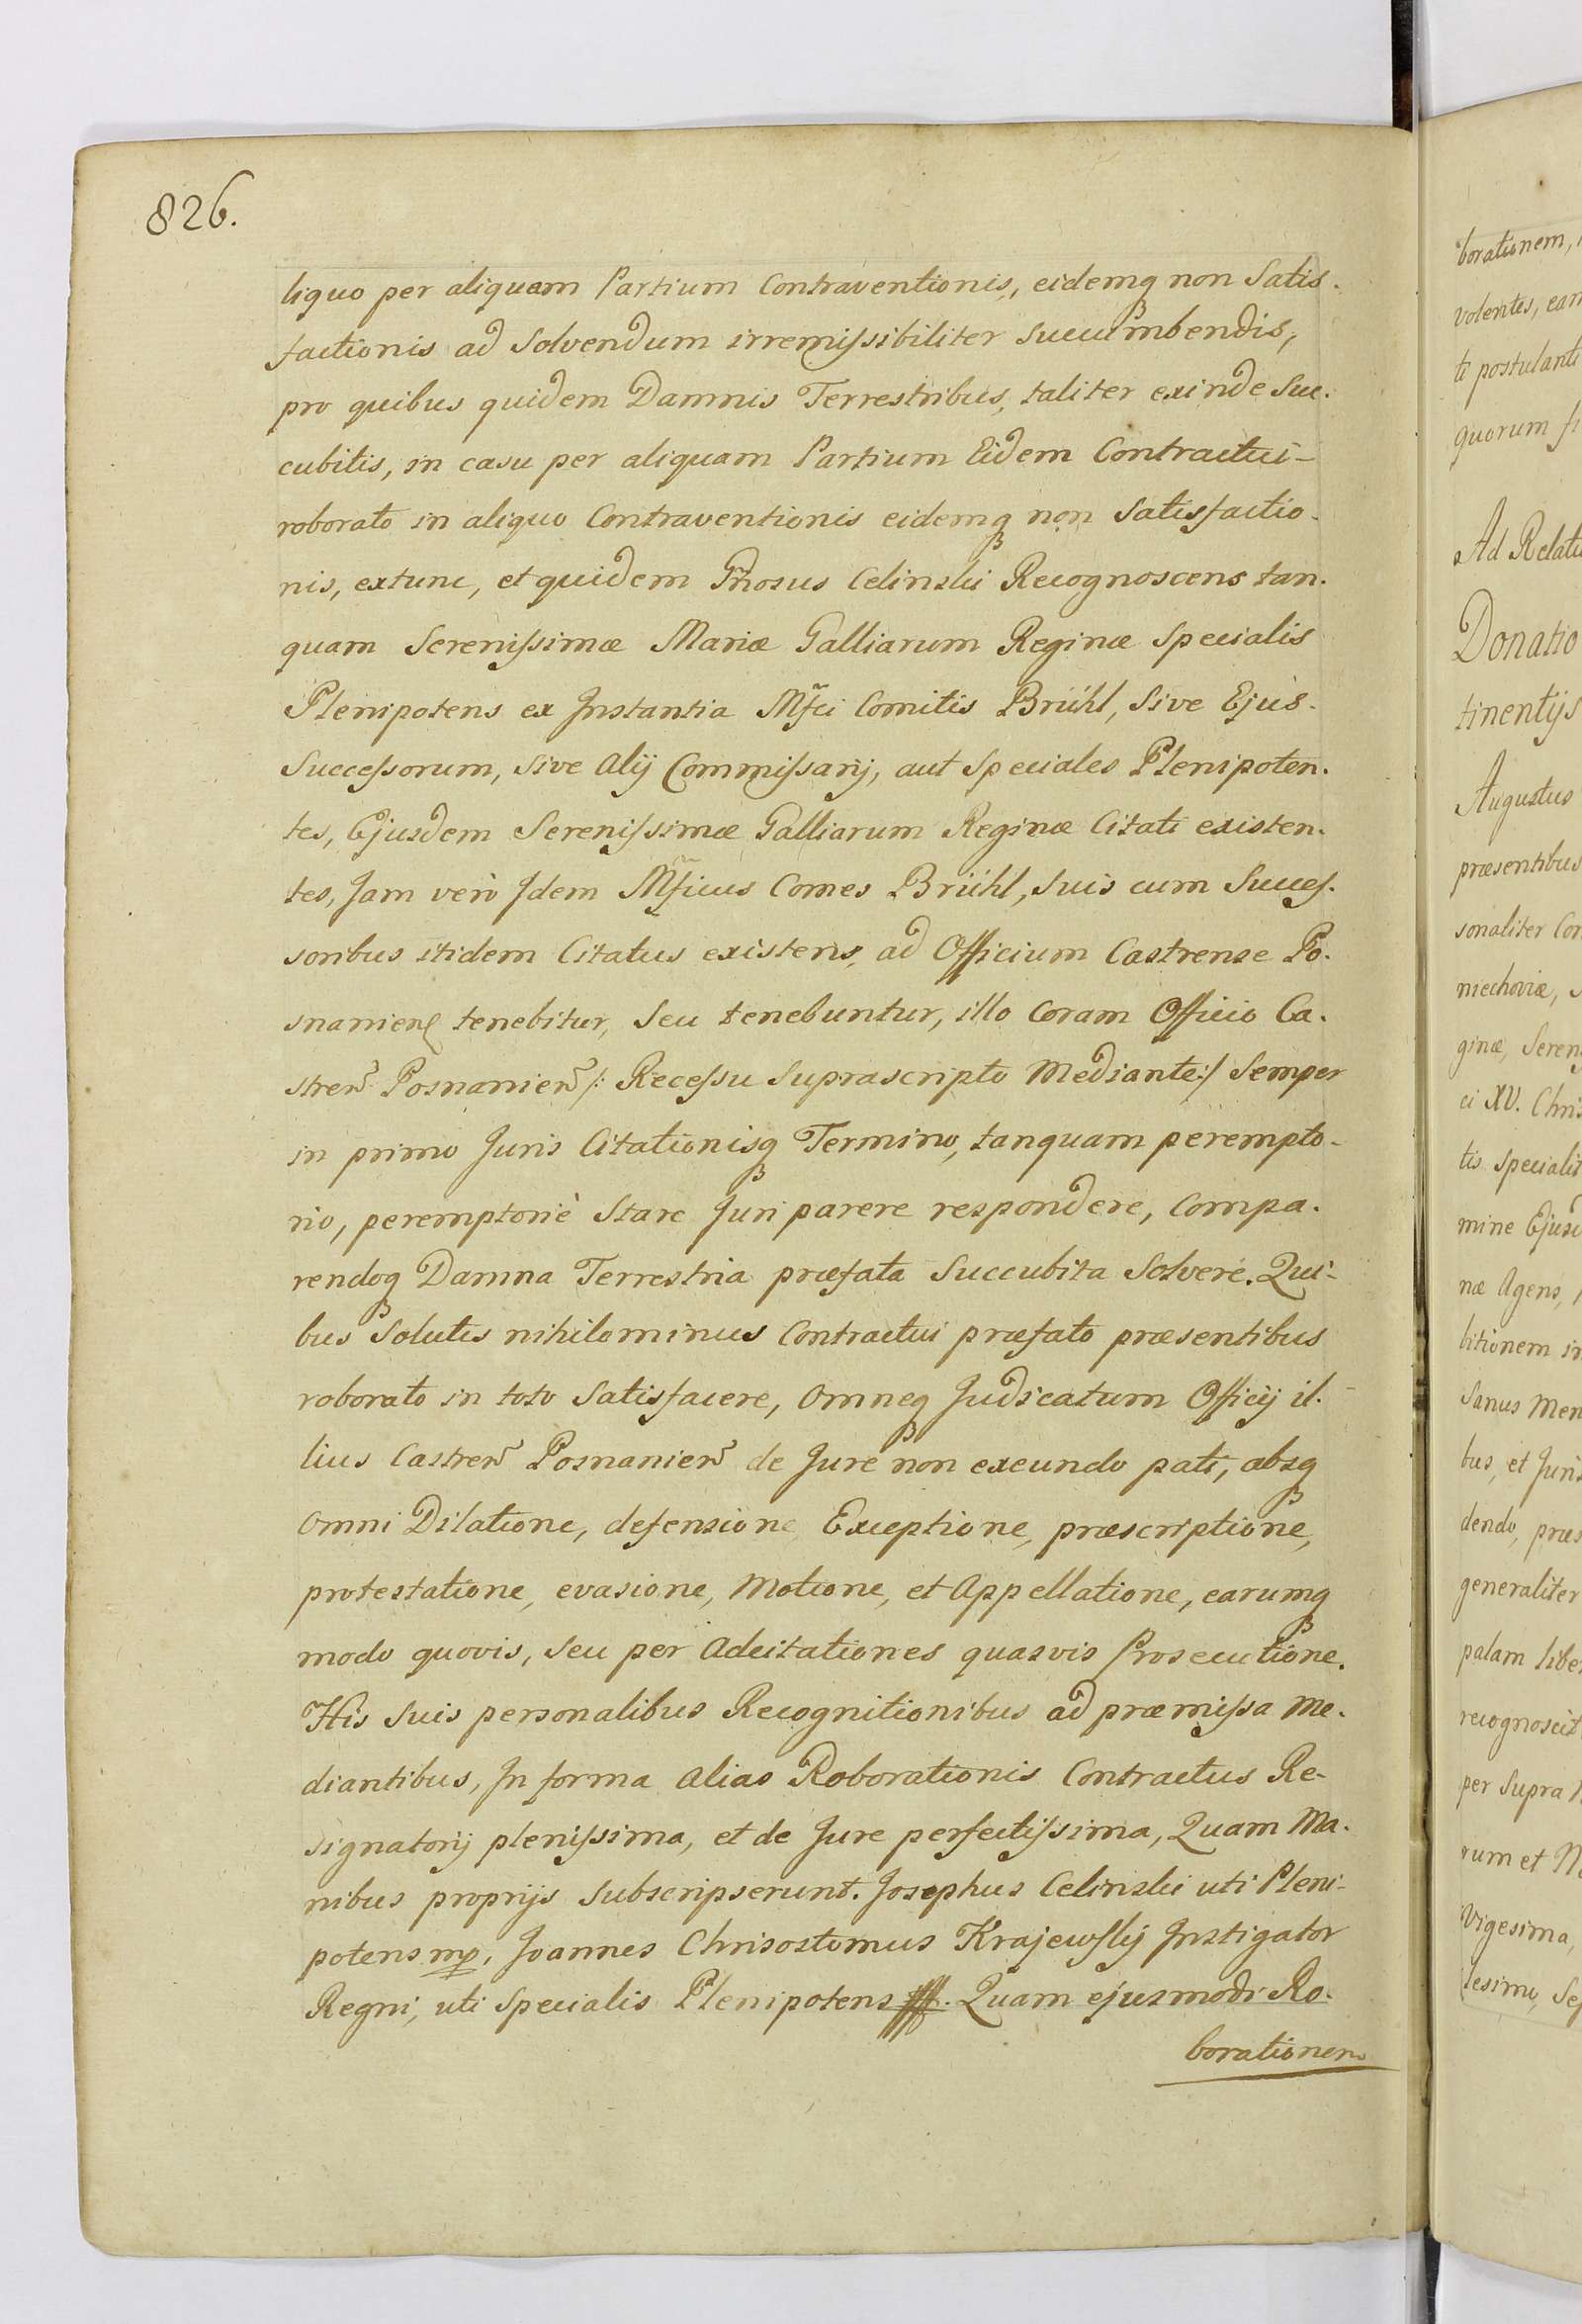 826.
liquo per aliquam Partium Contraventionis, eidemq3 non Satis-
factionis ad Solvendum irremissibiliter succumbendis,
pro quibus quidem Damnis Terrestribus, taliter exinde Suc-
cubitis, in casu per aliquam Partium Eidem Contractui-
roborato in aliquo Contraventionis eidemq3 non satisfactio-
nis, extunc, et quidem Gñosus Celinski Recognoscens tan-
quam Serenissimæ Mariæ Galliarum Reginæ Specialis
Plenipotens ex Instantia Mfci Comitis Brühl, Sive Ejus-
Successorum, Sive Alij Commissarij, aut Speciales Plenipoten-
tes, Ejusdem Serenissimæ Galliarum Reginæ Citati existen-
tes, Jam verò Idem Mficus Comes Brühl, Suis cum Succes-
soribus itidem Citatus existens, ad Officium Castrense Po-
snanien tenebitur, Seu tenebuntur, illo Coram Officio Ca-
stren Posnanien /: Recessu Suprascripto Mediante :/ Semper
in primo Juris Citationisq3 Termino, tanquam perempto-
rio, peremptoriè Stare Juri parere respondere, Compa-
rendoq3 Damna Terrestria præfata Succubita Solvere. Qui-
bus Solutis nihilominus Contractui præfato præsentibus
roborato in toto Satisfacere, Omneq3 Judicatum Officij il-
lius Castren Posnanien de Jure non exeundo pati, absq3
Omni Dilatione, defensione Exceptione, præscriptione,
protestatione, evasione, Motione, et Appellatione, earumq3
modo quovis, Seu per Adcitationes quasvis Prosecutione.
His Suis personalibus Recognitionibus ad præmissa Me-
diantibus, In forma alias Roborationis Contractus Re-
signatorij plenissima, et de Jure perfectissima, Quam Ma-
nibus proprijs Subscripserunt. Josephus Celinski uti Pleni-
potens mp, Joannes Chrisostomus Krajewskij Instigator
Regni, uti Specialis Plenipotens. Quam ejusmodi Ro-
borationem
borationem,
volentes, eam
ti postulanti
quorum
Ad Relati
Donatio
tinentijs
Augustus
præsentibus
sonaliter Con
miechoviæ,
ginæ, Seren
ci XV. Chris
tis specialit
mine Ejusd
næ Agens,
litionem in
Sanus Men
bus, et Juris
dendo, præs
generaliter
palam liber
recognoscit
per Supra
rum et
Vigesima,
lesimo, Sep